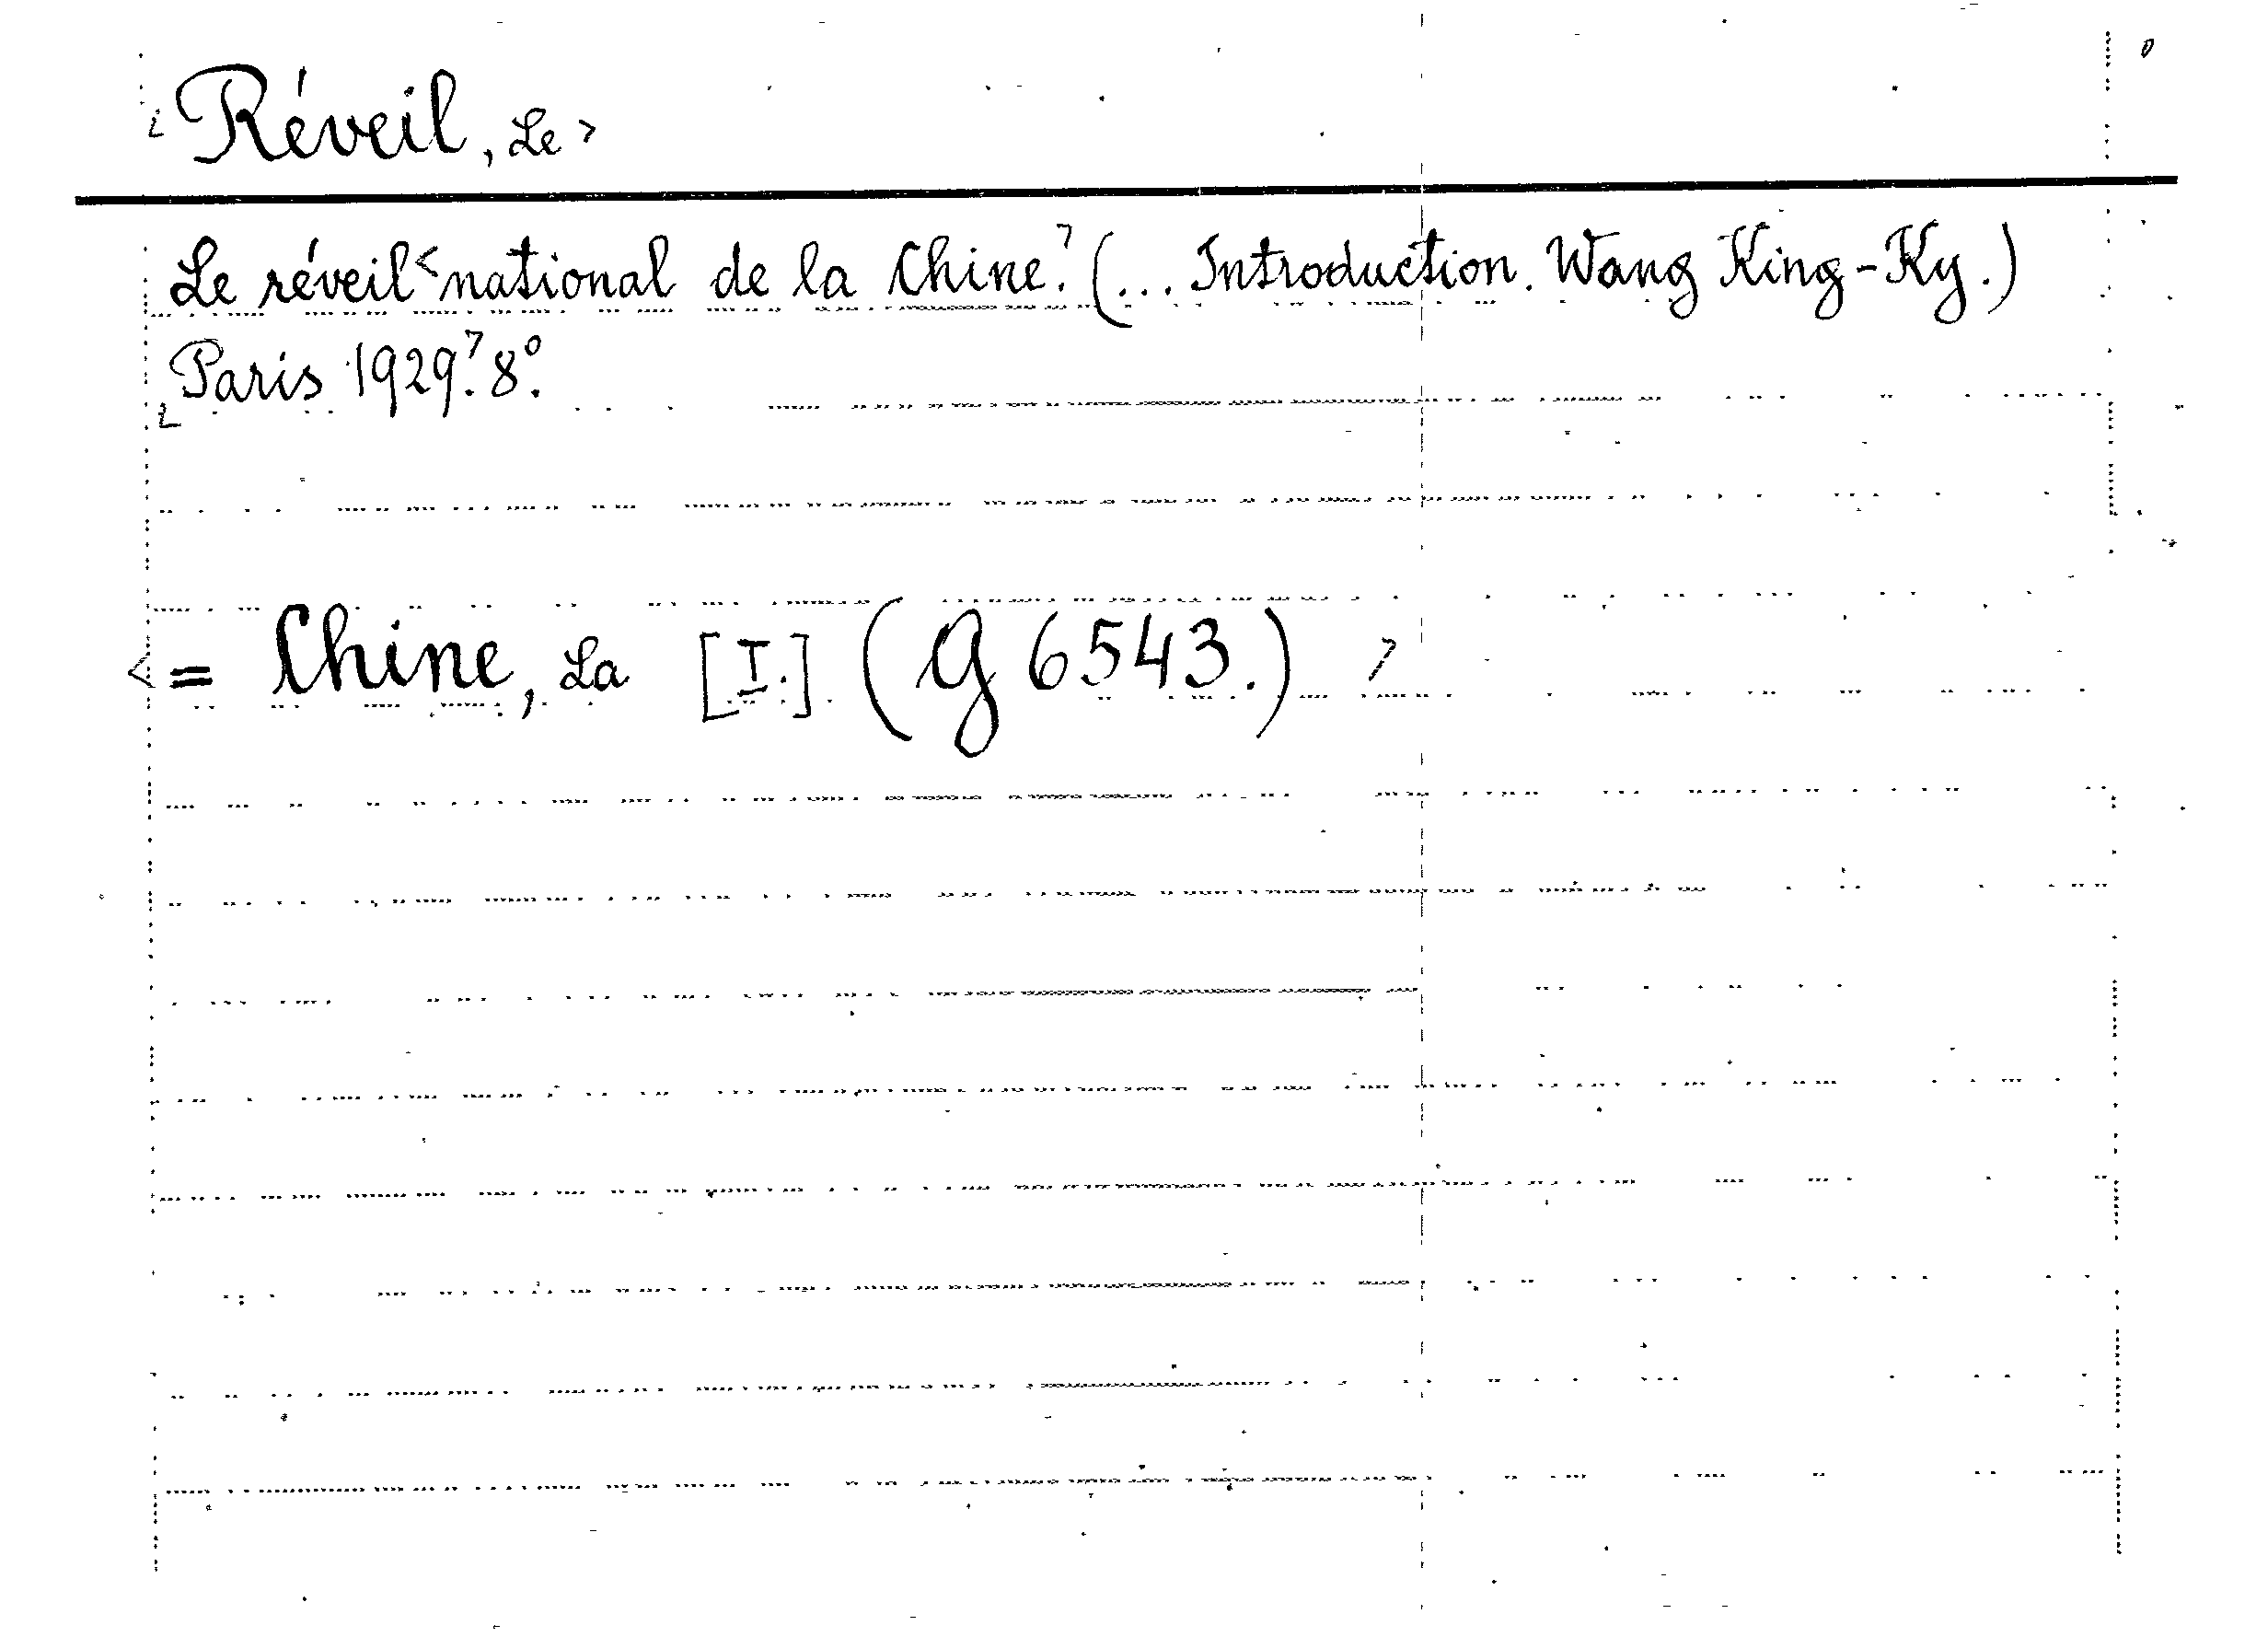 Réveil, Le
Le réveil national de la Chine. (... Introduction. Wang King-Ky.)
Paris 1929. 8°.
= Chine, La [I.] (G 6543.)